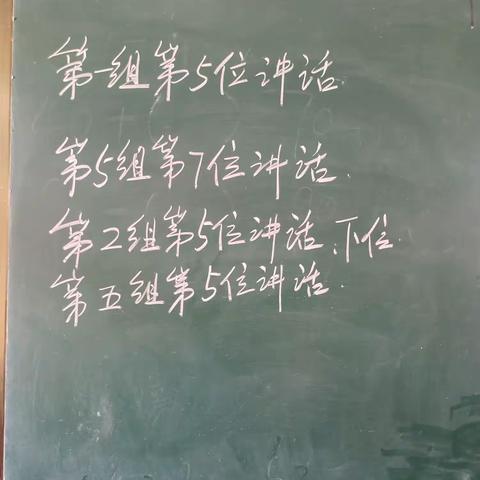 第一组第5位讲话
第5组第7位讲话.
第2组第5位讲话、下位.
第五组第5位讲话.